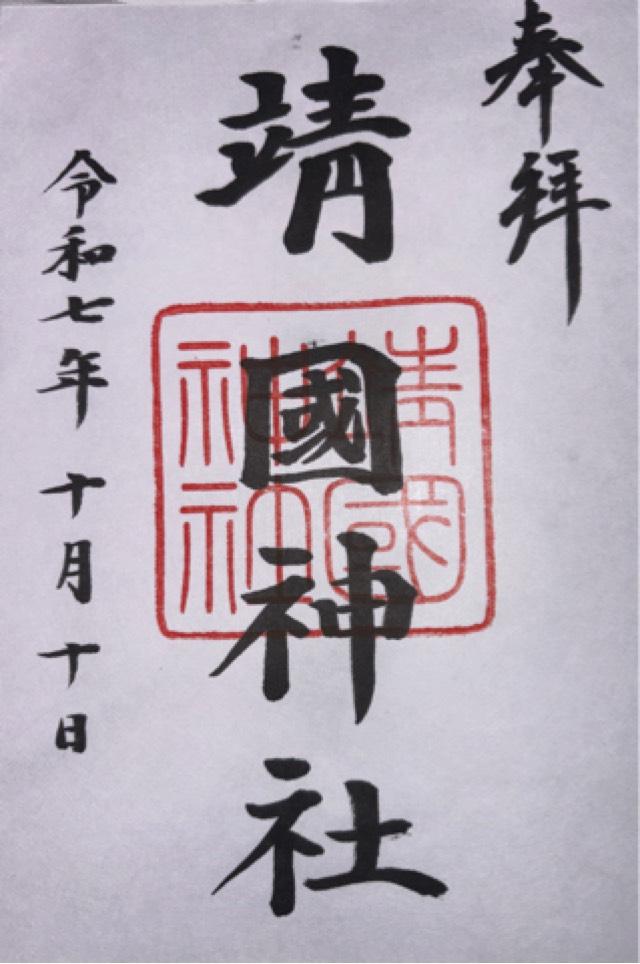 奉拝
靖國神社
靖國
神社
令和七年十月十日